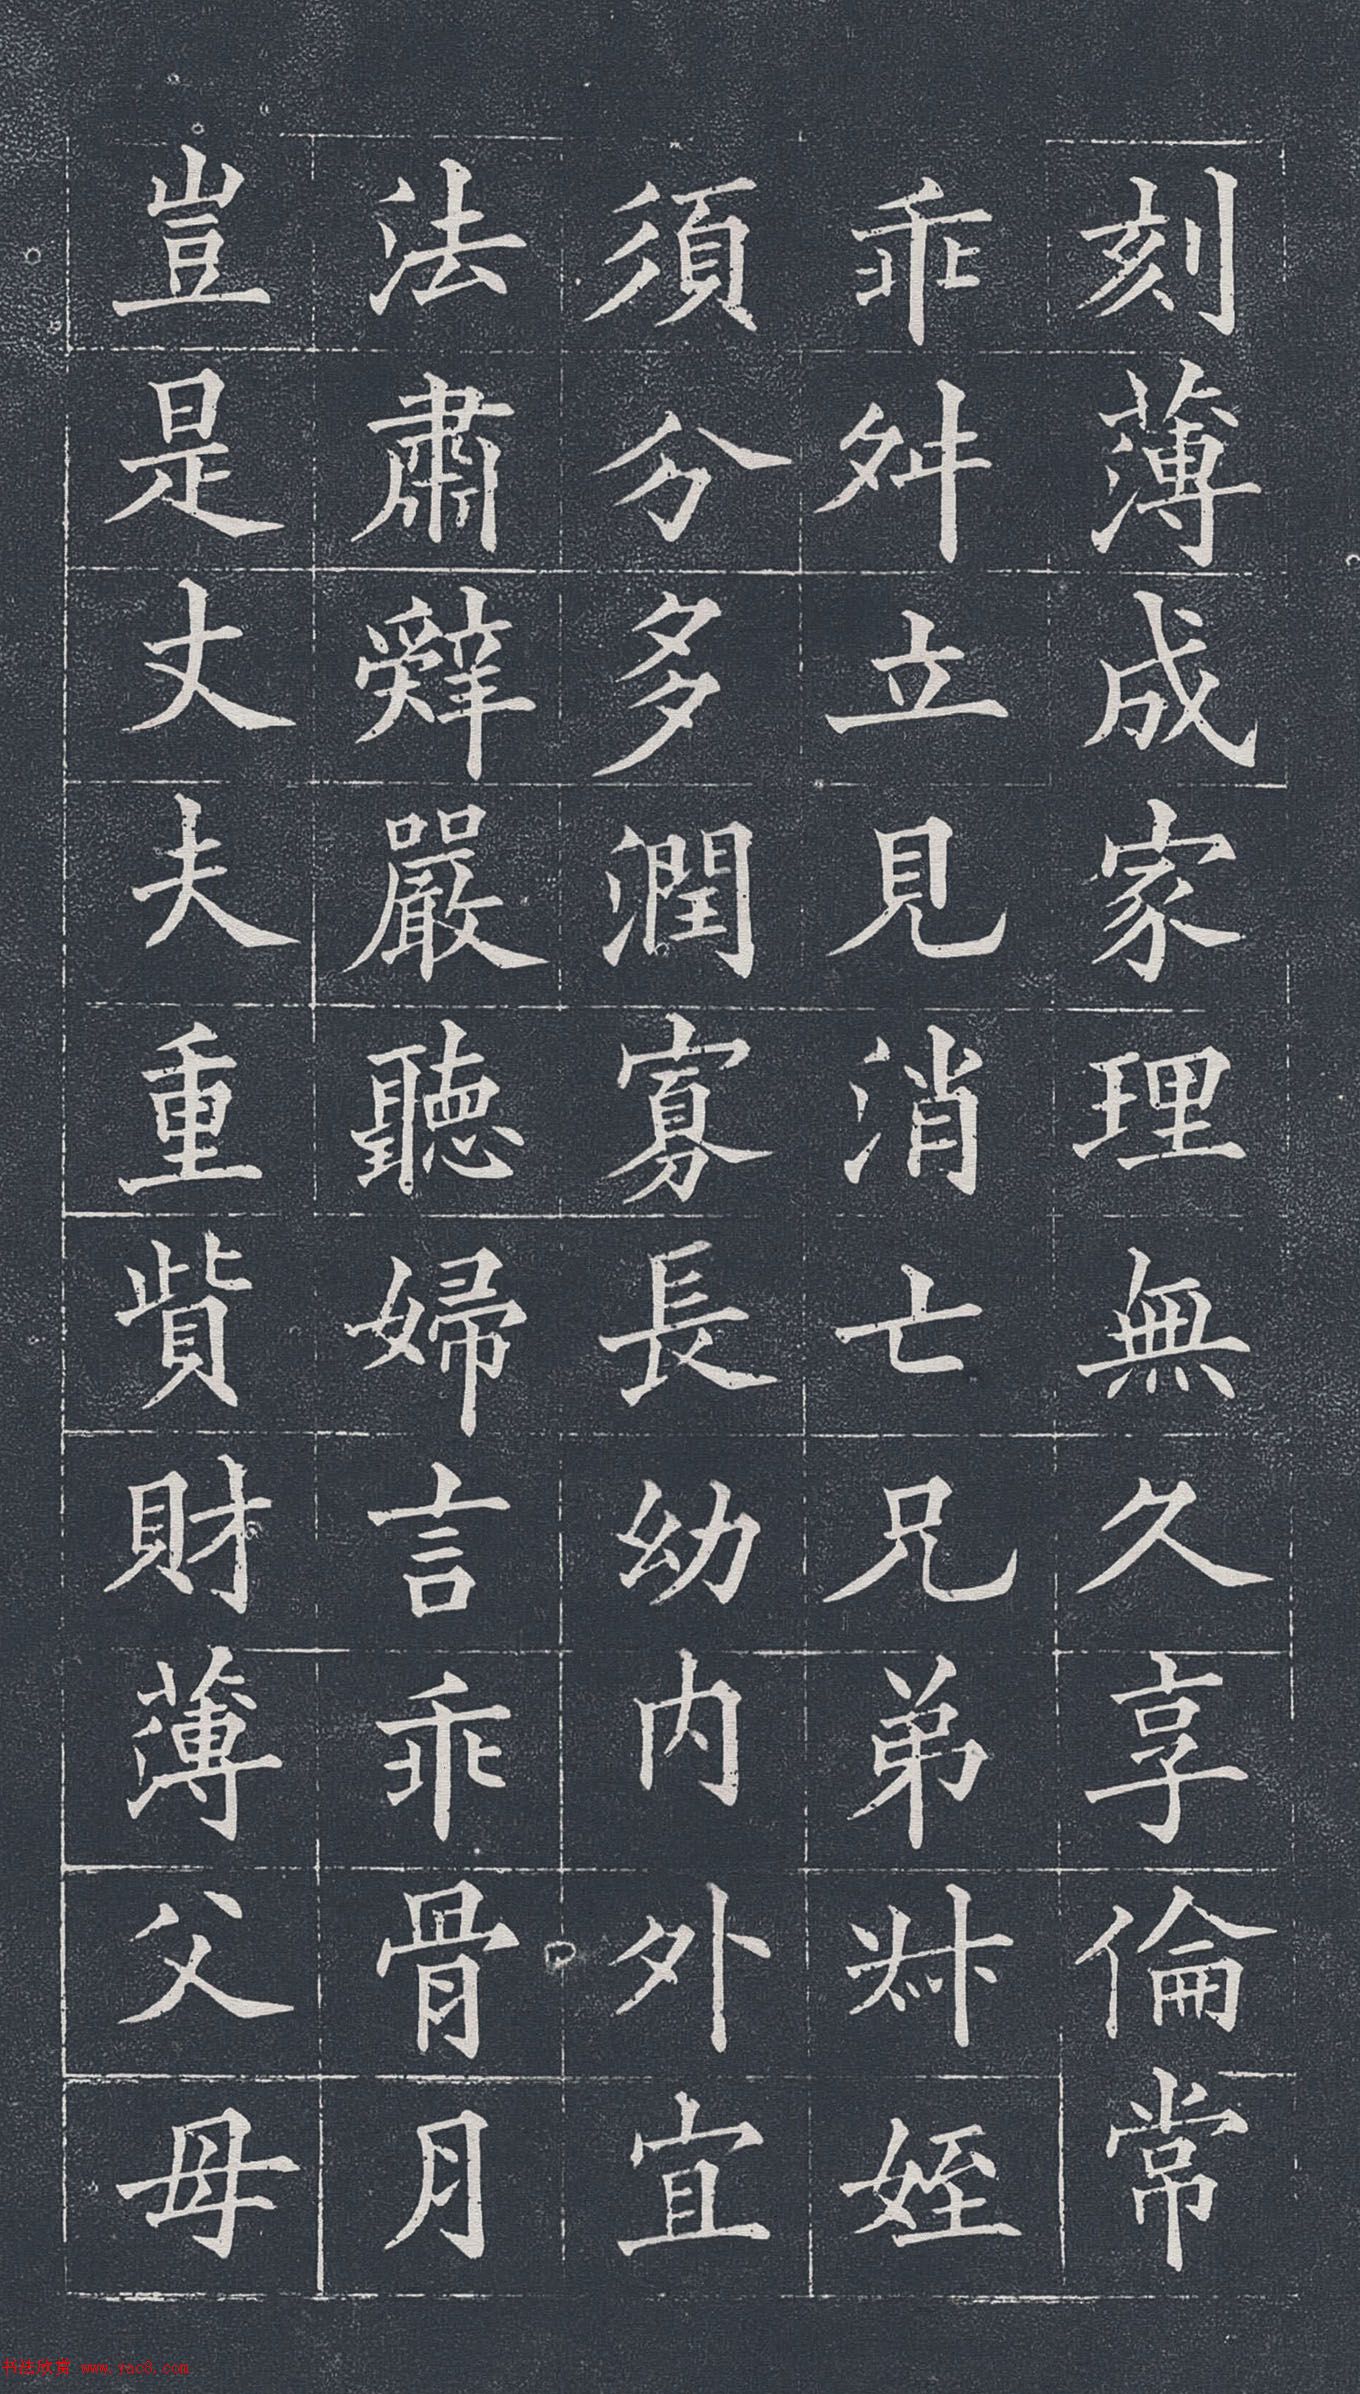 刻薄成家理無久享倫常
乖舛立見消亡兄弟叔姪
須分多潤寡長幼内外宜
法肅辭嚴聽婦言乖骨月
豈是丈夫重貲財薄父母
书法欣赏 www.yac8.com